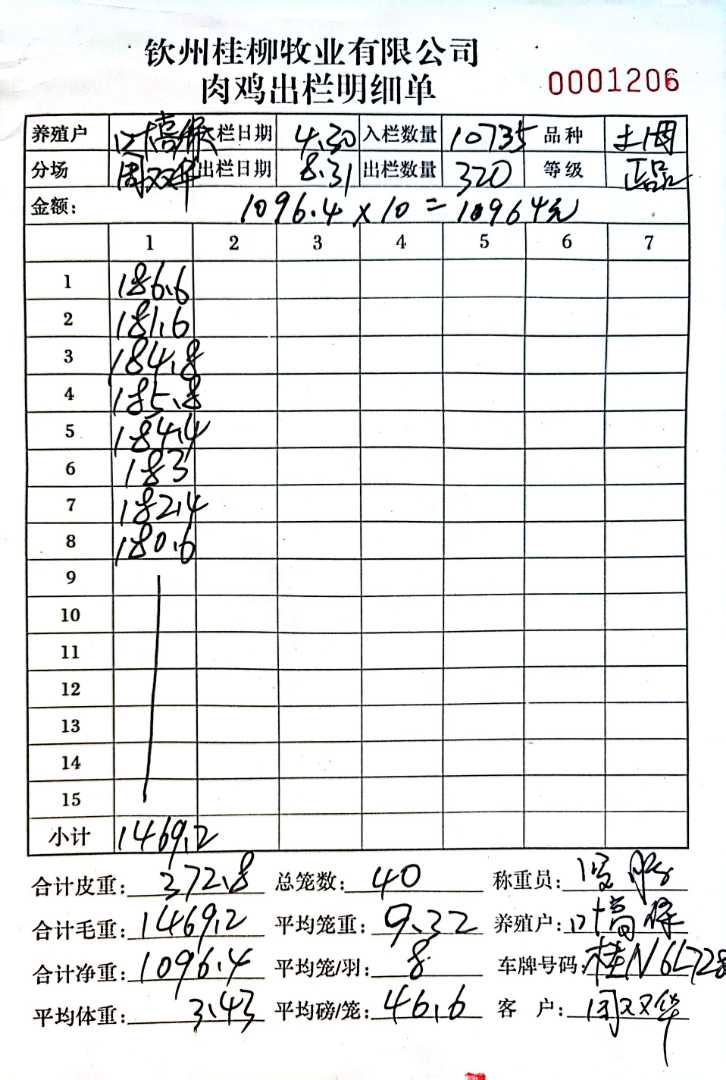 钦州桂柳牧业有限公司
肉鸡出栏明细单 0001206
养殖户 栏日期 4.30 入栏数量 10735 品种 土
分场 周双华 出栏日期 8.31 出栏数量 320 等级 正品
金额: 1096.4 × 10 = 10964元
1 2 3 4 5 6 7
1 186.6
2 181.6
3 184.8
4 185.8
5 184.4
6 183
7 182.4
8 180.6
9
10
11
12
13
14
15
小计 1469.2
合计皮重: 372.8 总笼数: 40 称重员:
合计毛重: 1469.2 平均笼重: 9.32 养殖户:
合计净重: 1096.4 平均笼/羽: 8 车牌号码: 桂N6L728
平均体重: 3.43 平均磅/笼: 46.6 客 户: 周双华